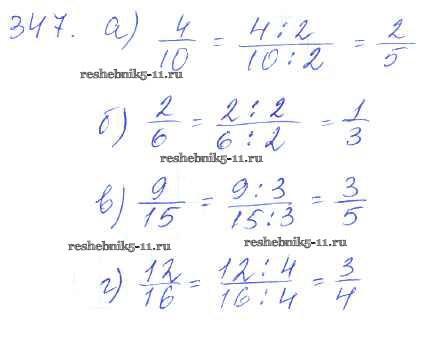 347. а) 4/10 = 4:2/10:2 = 2/5
reshebnik5-11.ru
б) 2/6 = 2:2/6:2 = 1/3
reshebnik5-11.ru
в) 9/15 = 9:3/15:3 = 3/5
reshebnik5-11.ru reshebnik5-11.ru
г) 12/16 = 12:4/16:4 = 3/4